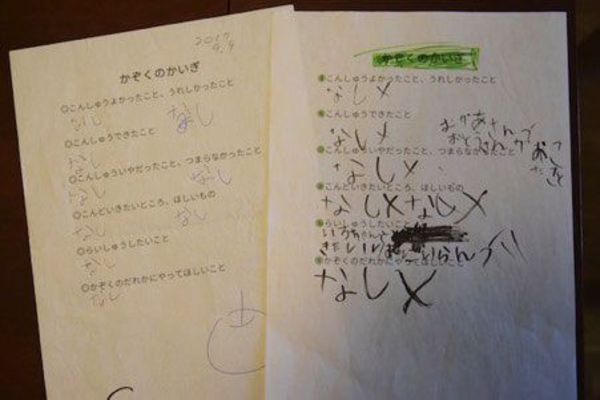 2017
9.9
かぞくのかいぎ
◎こんしゅうよかったこと、うれしかったこと
なし
なし
◎こんしゅうできたこと
なし
◎こんしゅういやだったこと、つまらなかったこと
なし
なし
◎こんどいきたいところ、ほしいもの
なし
なし
◎らいしゅうしたいこと
なし
◎かぞくのだれかにやってほしいこと
なし
かぞくのかいぎ
◎こんしゅうよかったこと、うれしかったこと
なし×
◎こんしゅうできたこと
なし×
おかあさんが
◎こんしゅういやだったこと、つまらなかったこと
なし×
◎こんどいきたいところ、ほしいもの
なし×なし×
◎らいしゅうしたいこと
◎かぞくのだれかにやってほしいこと
なし×